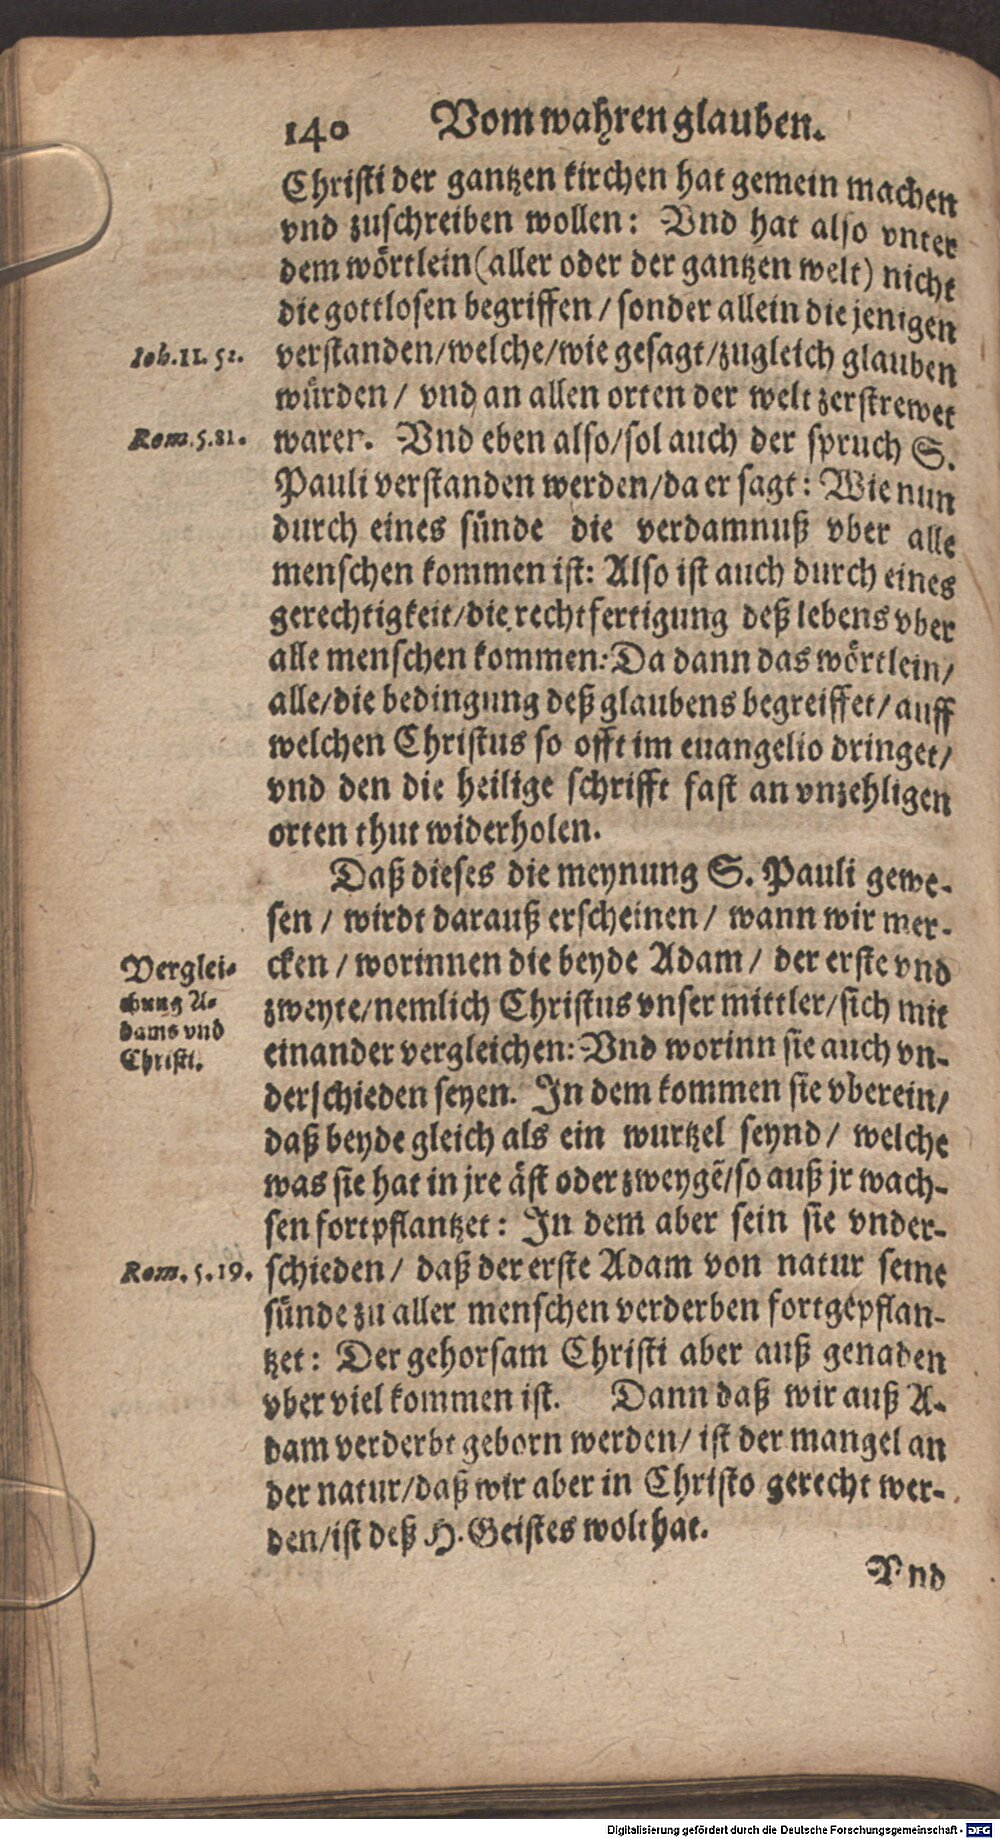 140 Vom wahren glauben.
Christi der gantzen kirchen hat gemein machen
vnd zuschreiben wollen: Vnd hat also vnter
dem wörtlein (aller oder der gantzen welt) nicht
die gottlosen begriffen / sonder allein die jenigen
Ioh. 11. 52.
verstanden/welche/wie gesagt/zugleich glauben
würden / vnd an allen orten der welt zerstrewet
Rom. 5. 81.
waren. Vnd eben also/sol auch der spruch S.
Pauli verstanden werden/da er sagt: Wie nun
durch eines sünde die verdamnuß vber alle
menschen kommen ist: Also ist auch durch eines
gerechtigkeit/die rechtfertigung deß lebens vber
alle menschen kommen: Da dann das wörtlein/
alle/die bedingung deß glaubens begreiffet/ auff
welchen Christus so offt im euangelio dringet/
vnd den die heilige schrifft fast an vnzehligen
orten thut widerholen.
Daß dieses die meynung S. Pauli gewe-
sen / wirdt darauß erscheinen / wann wir mer-
cken / worinnen die beyde Adam / der erste vnd
zweyte/nemlich Christus vnser mittler/sich mit
einander vergleichen: Vnd worinn sie auch vn-
derschieden seyen. In dem kommen sie vberein/
daß beyde gleich als ein wurtzel seynd / welche
was sie hat in jre äst oder zweygẽ/so auß jr wach-
sen fortpflantzet: In dem aber sein sie vnder-
Verglei-
chung A-
dams vnd
Christi.
Rom. 5. 19.
schieden / daß der erste Adam von natur seine
sünde zu aller menschen verderben fortgepflan-
tzet: Der gehorsam Christi aber auß genaden
vber viel kommen ist. Dann daß wir auß A-
dam verderbt geborn werden/ ist der mangel an
der natur/daß wir aber in Christo gerecht wer-
den/ist deß H. Geistes wolthat.
Vnd
Digitalisierung gefördert durch die Deutsche Forschungsgemeinschaft - DFG